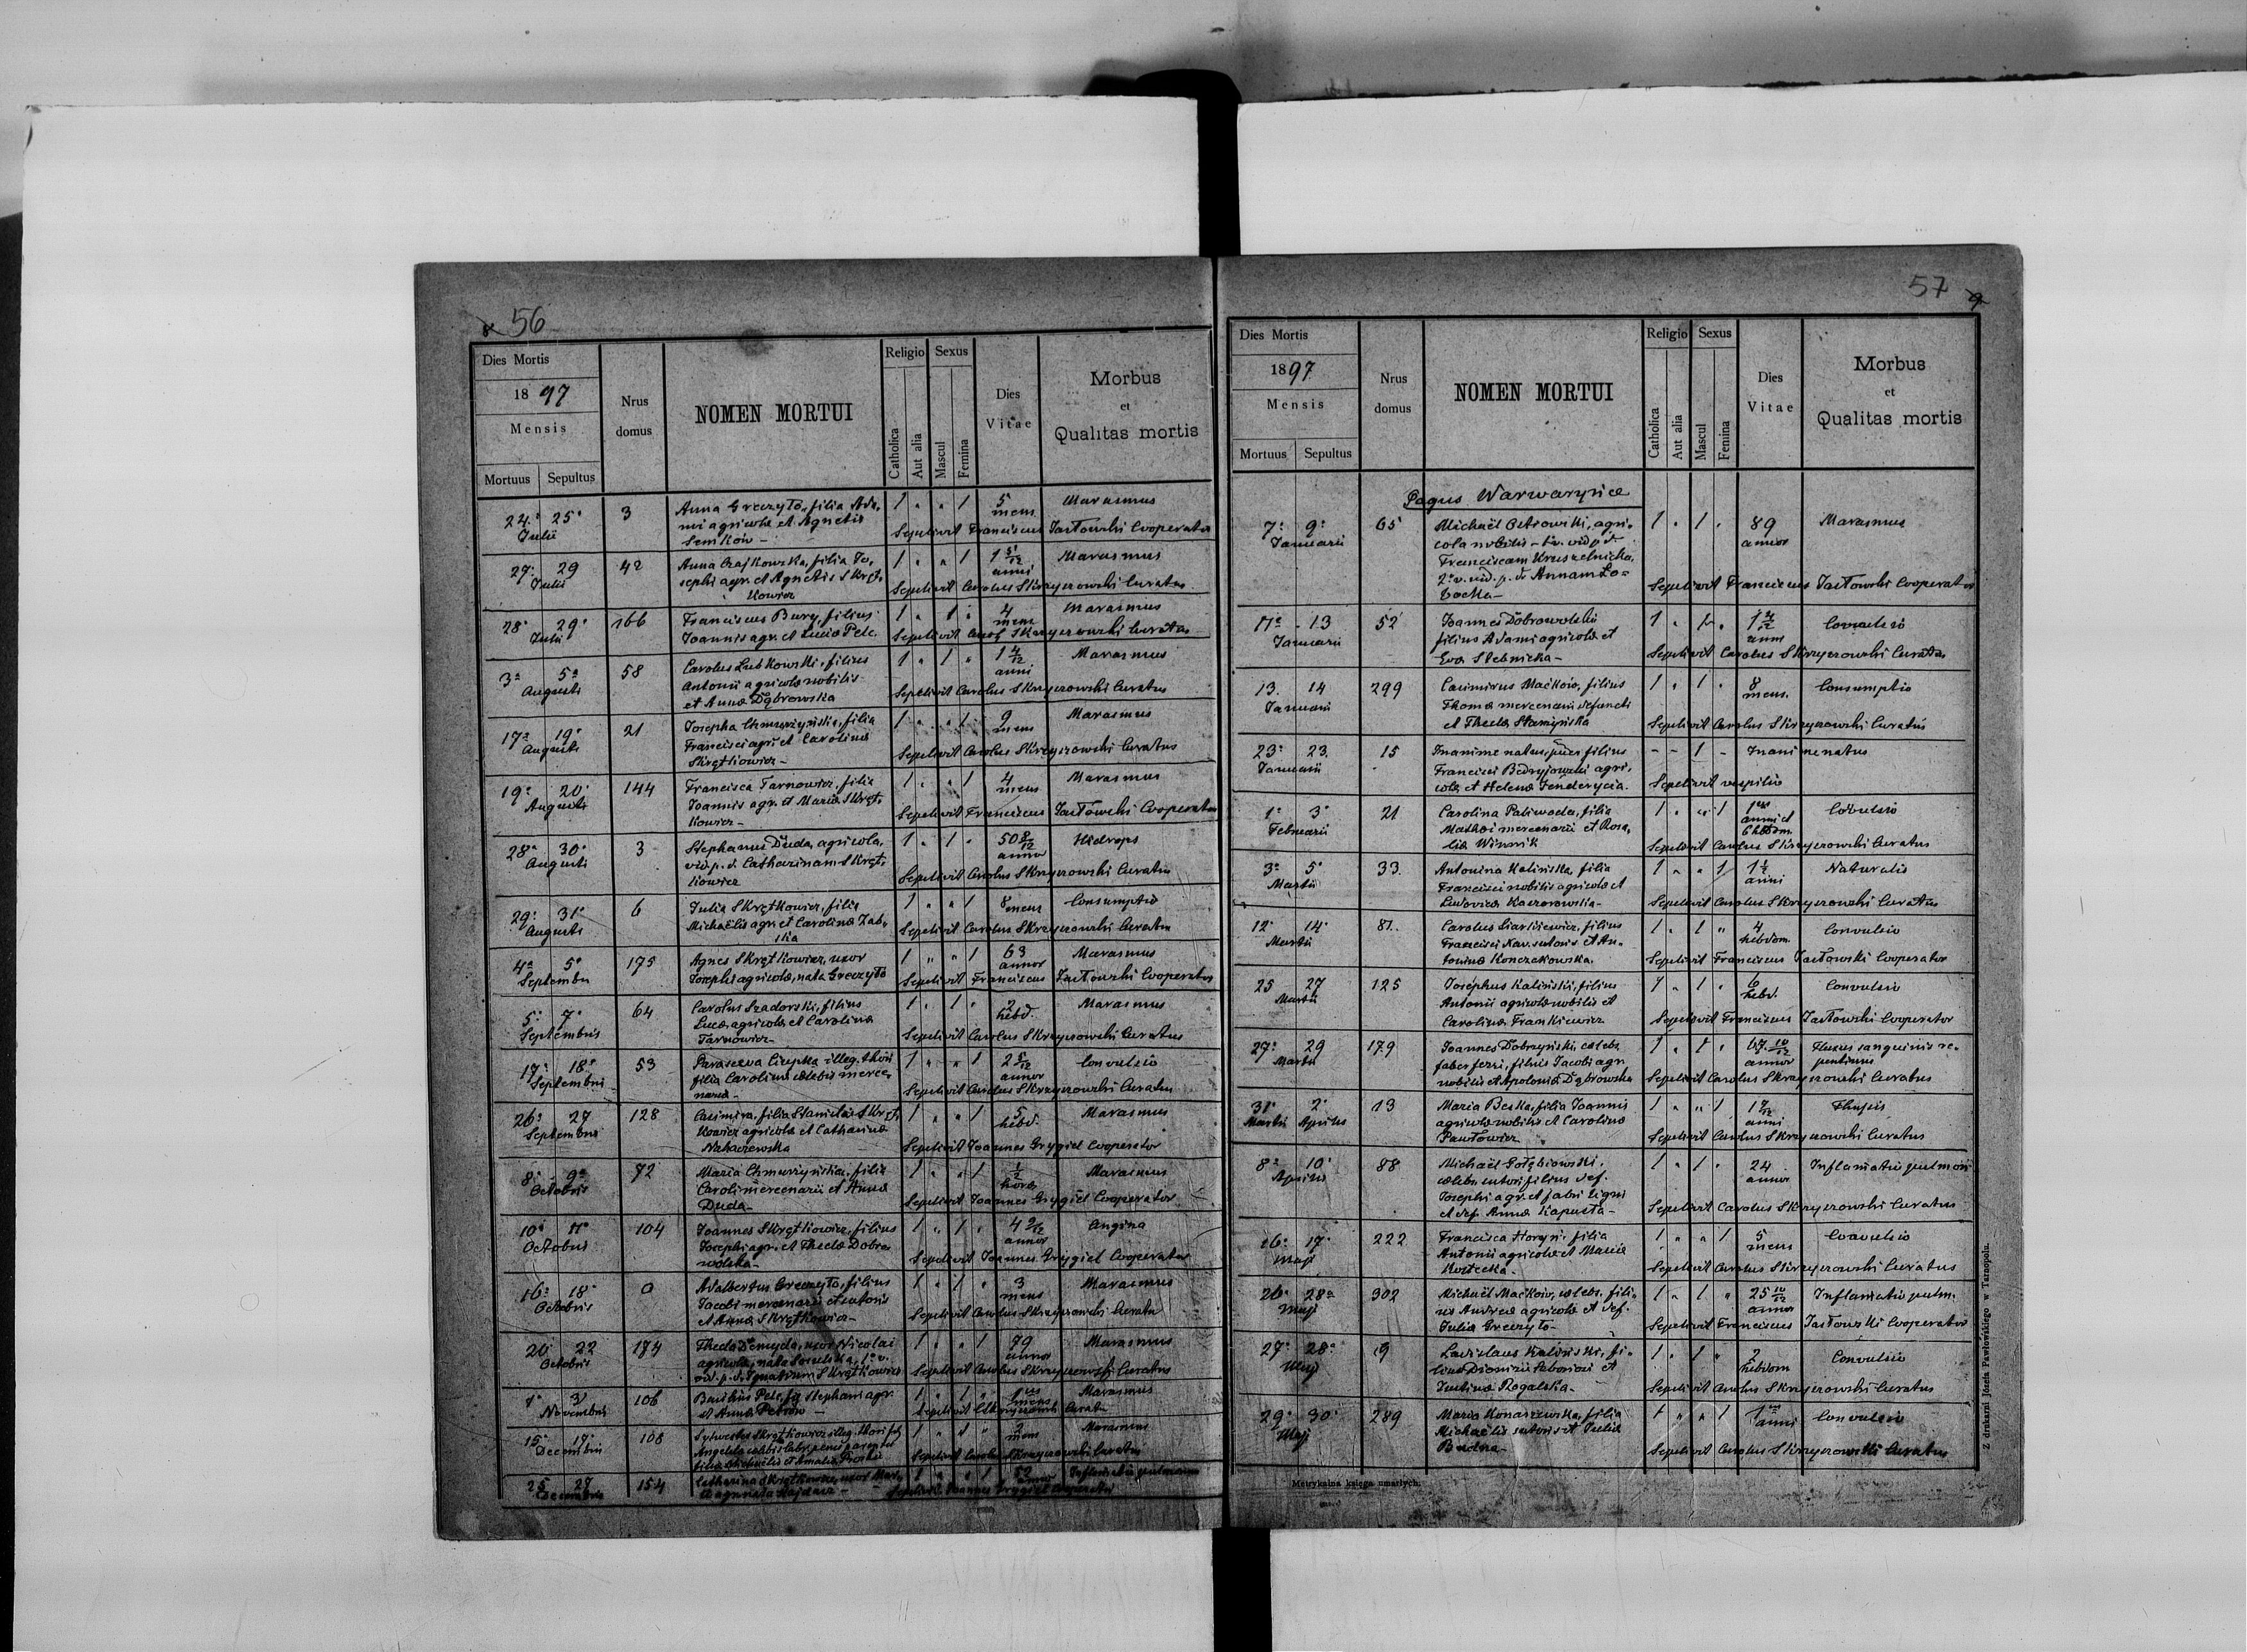 8 56
Dies Mortis
1897
Mensis
Mortuus Sepultus
Nrus domus
NOMEN MORTUI
Religio
Catholica
Aut alia
Sexus
Mascul
Femina
Dies Vitae
Morbus
et
Qualitas mortis
24. 25. 3 Anna Greczyło, filia Ada, 1 " " 1 5 Marasmus
Julii mi agricolæ et Agnetis mens
Semków - Sepelivit Franciscus Jastowski Cooperator
27. 29 42 Anna Czajkowska, filia Jo, 1 " " 1 1 5/12 Marasmus
Julii sephi agr. et Agnetis Skręt, anni
kowicz Sepelivit Carolus Skrzyszowski Curatus
28. 29. 166 Franciscus Bury, filius 1 " 1 " 4 Marasmus
Julii Joannis agr. et Luciæ Pelc. mens
Sepelivit Carol Skrzyszowski Curatus
3a 5a 58 Carolus Lubkowski, filius 1 " 1 " 1 4/12 Marasmus
Augusti Antonii agricolæ nobilis anni
et Annæ Dąbrowska Sepelivit Carolus Skrzyszowski Curatus
17a 19. 21 Josepha Chmurzyńska, filia 1 " " 1 9 Marasmus
Augusti Francisci agri et Carolinæ mens
Skrętkowicz - Sepelivit Carolus Skrzyszowski Curatus
19. 20. 144 Francisca Tarnowicz, filia 1 " " 1 4 Marasmus
Augusti Joannis agr. et Mariæ Skręt, mens
kowicz - Sepelivit Franciscus Jastowski Cooperator
28. 30. 3 Stephanus Duda, agricola, 1 " 1 " 50 8/12 Hidrops
Augusti vid. p. d. Catharinam Skręt, annor
kowicz Sepelivit Carolus Skrzyszowski Curatus
29. 31. 6 Julia Skrętkowicz, filia 1 " " 1 8 mens Consumptio
Augusti Michaëlis agr. et Carolinæ Zab,
ska Sepelivit Carolus Skrzyszowski Curatus
4a 5. 175 Agnes Skrętkowicz, uxor 1 " " 1 63 Marasmus
Septembris Josephi agricolæ, nata Greczyło annor
Sepelivit Franciscus Jastowski Cooperator
5. 7. 64 Carolus Szadorski, filius 1 " 1 " 2 Marasmus
Septembris Lucæ agricolæ et Carolinæ hebd.
Tarnowicz - Sepelivit Carolus Skrzyszowski Curatus
17. 18. 53 Parasceva Ciupka illeg. thori 1 " " 1 2 5/12 Convulsio
Septembris filia Carolinæ cælebis merce, annor
nariæ - Sepelivit Carolus Skrzyszowski Curatus
26. 27 128 Casimira, filia Stanislai Skręt, 1 " " 1 5 Marasmus
Septembris kowicz agricolæ et Catharinæ hebd.
Nahaczewska Sepelivit Joannes Grygiel Cooperator
8. 9a 72 Maria Chmurzyńska, filia 1 " " 1 1/2 Marasmus
Octobris Caroli mercenarii et Annæ horæ
Duda - Sepelivit Joannes Grygiel Cooperator
10. 11. 104 Joannes Skrętkowicz, filius 1 " 1 " 4 2/12 Angina
Octobris Josephi agr. et Theclæ Dobro, annor
wolska - Sepelivit Joannes Grygiel Cooperator
16. 18. 0 Adalbertus Greczyło, filius 1 " 1 " 3 Marasmus
Octobris Jacobi mercenarii et sutoris mens
et Annæ Skrętkowicz - Sepelivit Carolus Skrzyszowski Curatus
20 22 174 Thecla Demyda, uxor Nicolai 1 " " 1 79 Marasmus
Octobris agricolæ, nata 1o v. annor
vid. p. d. Ignatium Skrętkowicz Sepelivit Carolus Skrzyszowski Curatus
1. 3. 106 Basilius Pelc, fil. Stephani agr. 1 " 1 " 1 Marasmus
Novembris et Annæ Petrów - mens
Sepelivit CSkrzyszowski Curatus
15. 17. 108 Sylvester Skrętkowicz illeg. thori fil. 1 " 1 " 2 Marasmus
Decembris Angelæ cælebis mens
filiæ Michaëlis et Amaliæ Sepelivit Carolus Skrzyszowski Curatus
25 27 154 Catharina Skrętkowicz, uxor 1 " " 1 52 Inflamatio pulmonum
Decembris annor
Sepelivit Joannes Grygiel Cooperator
57 9
Dies Mortis
1897
Mensis
Mortuus Sepultus
Nrus domus
NOMEN MORTUI
Religio
Catholica
Aut alia
Sexus
Mascul
Femina
Dies Vitae
Morbus
et
Qualitas mortis
Pagus Warwaryńce
7. 9. 65 Michaël Ostrowski, agri, 1 " 1 " 89 Marasmus
Januarii cola nobilis - 1o v. vid. p. d. annor
Franciscam Kruszelnicka,
2o v. vid. p. d. Annam Ło=
bocka - Sepelivit Franciscus Jastowski Cooperator
11a 13 52 Joannes Dobrowolski 1 " 1 " 1 4/12 Convulsio
Januarii filius Adami agricolæ et anni
Evæ Stebnicka - Sepelivit Carolus Skrzyszowski Curatus
13. 14 299 Casimirus Maćków, filius 1 " 1 " 8 Consumptio
Januarii Thomæ mercenarii defuncti mens.
et Theclæ Stamyńska Sepelivit Carolus Skrzyszowski Curatus
23. 23. 15 Inanime natus, puer filius - - 1 - Inanime natus
Januarii Francisci Bedryjowski agri,
colæ et Helenæ Fenderycia. Sepelivit vespilio
1. 3. 21 Carolina Paliwoda, filia 1 " " 1 1 anni et Covulsio
Februarii Mathæi mercenarii et Rosa, 6 hebdom.
liæ Winnik Sepelivit Carolus Skrzyszowski Curatus
3a 5. 33. Antonina Kalińska, filia 1 " " 1 1 1/2 Naturalis
Martii Francisci nobilis agricolæ et anni
Ludovicæ Kaczorowska - Sepelivit Carolus Skrzyszowski Curatus
12. 14. 81. Carolus Siarkiewicz, filius 1 " 1 " 4 Convulsio
Martii Francisci Xav. sutoris et An, hebdom.
toninæ Konczakowska. Sepelivit Franciscus Jastowski Cooperator
25 27 125 Josephus Kaliński, filius 1 " 1 " 6 Convulsio
Martii Antonii agricolæ nobilis et hebd.
Carolinæ Frankiewicz Sepelivit Franciscus Jastowski Cooperator
27. 29 179 Joannes Dobrzyński, cælebs 1 " 1 " 67 10/12 Fluxus sanguinis re,
Martii faber ferri, filius Jacobi agr. annor pentinus
nobilis et Apoloniæ Dąbrowska Sepelivit Carolus Skrzyszowski Curatus
31. 2. 13 Maria Beska, filia Joannis 1 " " 1 1 7/12 Thysis
Martii Aprilis agricolæ nobilis et Carolinæ anni
Pawłowicz Sepelivit Carolus Skrzyszowski Curatus
8a 10. 88 Michaël Gołębiowski, 1 " 1 " 24 Inflamatio pulmon
Aprilis cælebs sutor filius def. annor
Josephi agr. et fabri ligni
et def. Annæ Kapusta - Sepelivit Carolus Skrzyszowski Curatus
16. 17. 222 Francisca Horyń. filia 1 " " 1 5 Convulsio
Maji Antonii agricolæ et Mariæ mens
Kostecka. Sepelivit Carolus Skrzyszowski Curatus
26. 28a 302 Michaël Maćków, cælebs, fili, 1 " 1 " 25 10/12 Inflamatio pulm.
Maji us Andreæ agricolæ et def. annor
Juliæ Greczyło - Sepelivit Franciscus Jastowski Cooperator
27. 28. 9 Ladislaus Kaliński, fi, 1 " 1 " 2 Convulsio
Maji lius Dionizii laboriosi et hebdom
Justinæ Rogalska - Sepelivit Carolus Skrzyszowski Curatus
29. 30. 289 Maria Konaszewska, filia 1 " " 1 1 anni Convulsio
Maji Michaëlis sutoris et Juliæ
Budna - Sepelivit Carolus Skrzyszowski Curatus
Metrykalna księga umarłych.
Z drukarni Józefa Pawłowskiego w Tarnopolu.